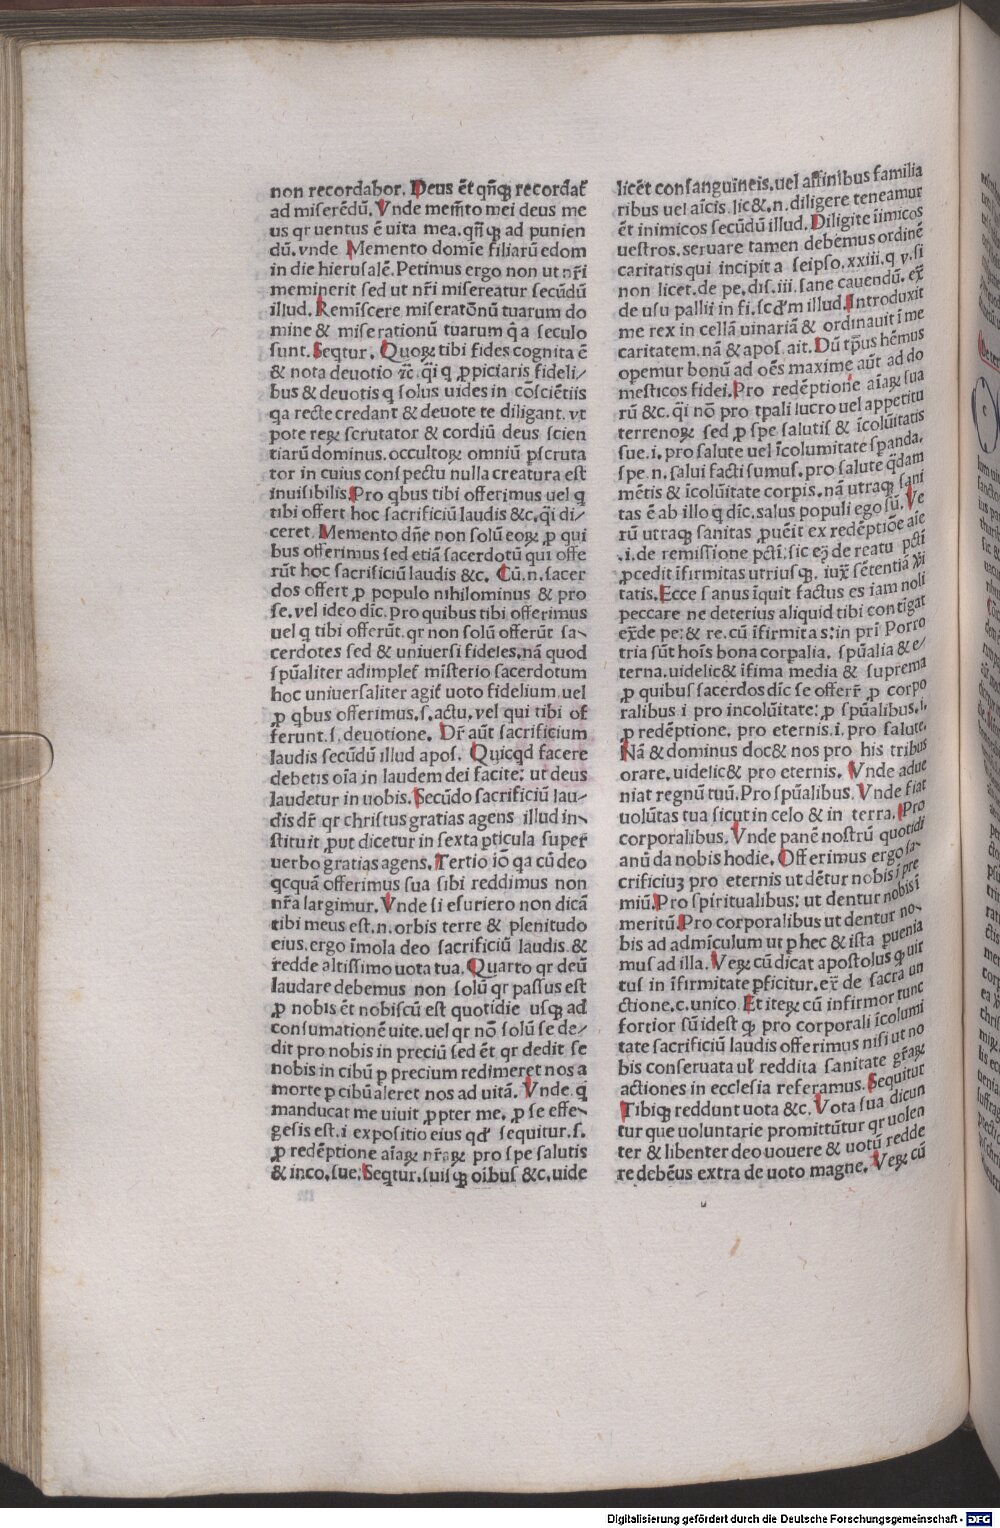 non recordabor. Deus ēt qn̄qꝫ recordat̄
ad miſerēdū. Vnde mem̄to mei deus me
us qr uentus ē uita mea. qn̄qꝫ ad punien
dū. vnde Memento domīe filiarū edom
in die hieruſalē. Petimus ergo non ut nr̄i
meminerit ſed ut nr̄i miſereatur ſecūdū
illud. Remiſcere miſeratōnū tuarum do
mine & miſerationū tuarum q̄ a ſeculo
ſunt. Seqtur. Quoꝝ tibi fides cognita ē
& nota deuotio ⁊c. q̄i q ꝓpiciaris fideli/
bus & deuotis q ſolus uides in cōſciētiis
qa recte credant & deuote te diligant. vt
pote reꝝ ſcrutator & cordiū deus ſcien
tiarū dominus. occultoꝝ omniū pſcruta
tor in cuius conſpectu nulla creatura eſt
inuiſibilis. Pro qbus tibi offerimus uel q
tibi offert hoc ſacrificiū laudis &c. q̄i di/
ceret. Memento dn̄e non ſolū eoꝝ ꝓ qui
bus offerimus ſed etiā ſacerdotū qui offe
rūt hoc ſacrificiū laudis &c. Cū.n.ſacer
dos offert ꝓ populo nihilominus & pro
ſe. vel ideo dīc. pro quibus tibi offerimus
uel q tibi offerūt. qr non ſolū offerūt ſa-
cerdotes ſed & uniuerſi fideles, nā quod
ſpūaliter adimplet̄ miſterio ſacerdotum
hoc uniuerſaliter agit̄ uoto fidelium. uel
ꝓ qbus offerimus. ſ. actu. vel qui tibi of
ferunt. ſ. deuotione. Dr̄ aūt ſacrificium
laudis ſecūdū illud apoſ. Quicqd facere
debetis oīa in laudem dei facite: ut deus
laudetur in uobis. Secūdo ſacrificiū lau/
dis dr̄ qr chriſtus gratias agens illud in-
ſtituit ꝓut dicetur in ſexta pticula ſuper̄
uerbo gratias agens. Tertio iō qa cū deo
qcquā offerimus ſua ſibi reddimus non
nr̄a largimur. Vnde ſi eſuriero non dicā
tibi meus eſt. n. orbis terre & plenitudo
eius. ergo īmola deo ſacrificiū laudis &
redde altiſſimo uota tua. Quarto qr deū
laudare debemus non ſolū qr paſſus eſt
ꝓ nobis ēt nobiſcū eſt quotidie uſqꝫ ad
conſumationē uite. uel qr nō ſolū ſe de/
dit pro nobis in preciū ſed ēt qr dedit ſe
nobis in cibū ꝓ precium redimeret nos a
morte ꝑ cibū aleret nos ad uitā. Vnde q̄
manducat me uiuit ꝓpter me. ꝓ ſe effe-
geſis eſt. i expoſitio eius qđ ſequitur. ſ.
ꝓ redēptione aīaꝝ nr̄aꝝ pro ſpe ſalutis
& inco. ſue. Seqtur. ſuiſqꝫ oībus &c. uide
licēt conſanguineis. uel affinibus familia
ribus uel aīcis lic&. n. diligere teneamur
ēt inimicos ſecūdū illud. Diligite īimicos
ueſtros. ſeruare tamen debemus ordinē
caritatis qui incipit a ſeipſo. xxiii. q v. ſi
non licet. de pe. diſ. iii. ſane cauendū. ex̄
de uſu pallii in fi. ſcđm illud. Introduxit
me rex in cellā uinariā & ordinauit ī me
caritatem. nā & apoſ. ait. Dū tp̄us hēmus
opemur bonū ad oēs maxime aūt ad do
meſticos fidei. Pro redēptione aīaꝝ ſua
rū &c. q̄i nō pro tpali lucro uel appetitu
terrenoꝝ ſed ꝓ ſpe ſalutis & īcolūitatis
ſue. i. pro ſalute uel īcolumitate ſpanda.
ſpe. n. ſalui facti ſumus. pro ſalute q̄dam
mētis & īcolūitate corpis. nā utraqꝫ ſani
tas ē ab illo q dīc. salus populi ego ſū. Ve
rū utraqꝫ ſanitas ꝓuēit ex redēptiōe aīe
.i. de remiſſione pcti: ſic eȷ̄ de reatu pcti
ꝓcedit īfirmitas utriuſqꝫ. iux̄ ſētentiā xp̄i
tatis. Ecce ſanus īquit factus es iam noli
peccare ne deterius aliquid tibi contīgat
ex̄ de pe: & re. cū īfirmitas: in prī Porro
tria ſūt hoīs bona corpalia. ſpūalia & e/
terna. uidelic& īfima media & ſuprema
ꝓ quibus ſacerdos dīc ſe offerr̄ ꝓ corpo
ralibus i pro incolūitate: ꝓ ſpūalibus. i.
ꝓ redēptione, pro eternis. i. pro ſalute.
Nā & dominus doc& nos pro his tribus
orare. uidelic& pro eternis. Vnde adue
niat regnū tuū. Pro ſpūalibus. Vnde fiat
uolūtas tua ſicut in celo & in terra. Pro
corporalibus. Vnde panē noſtrū quotidi
anū da nobis hodie. Offerimus ergo ſa-
crificiuꝫ pro eternis ut dētur nobis ī pre
miū. Pro ſpiritualibus: ut dentur nobis ī
meritū. Pro corporalibus ut dentur no-
bis ad admīculum ut ꝑ hec & iſta ꝑuenia
mus ad illa. Veꝝ cū dicat apoſtolus qꝫ uir
tus in īfirmitate pficitur. ex̄ de ſacra un
ctione. c. unico Et iteꝝ cū infirmor tunc
fortior ſū ideſt qꝫ pro corporali īcolumi
tate ſacrificiū laudis offerimus niſi ut no
bis conſeruata uł reddita ſanitate gr̄aꝝ
actiones in eccleſia referamus. Sequitur
Tibiqꝫ reddunt uota &c. Vota ſua dicun
tur que uoluntarie promittūtur qr uolen
ter & libenter deo uouere & uotū redde
re debēus extra de uoto magne. Veꝝ cū
Digitalisierung gefördert durch die Deutsche Forschungsgemeinschaft - DFG